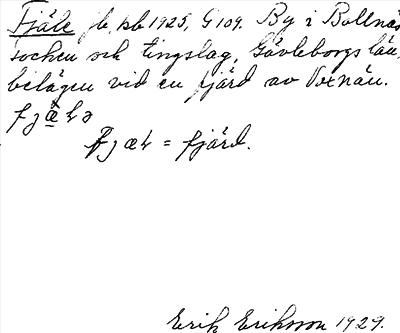 Fjäle jb, kb 1925, G 109. By i Bollnäs
socken och tingslag, Gävleborgs län,
belägen vid en fjärd av Voxnan.
fjæ̱ɫə
fjæɫ = fjärd.
Erik Eriksson 1929.